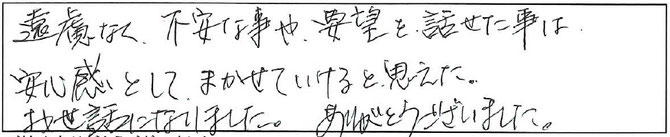 遠慮なく、不安な事や、要望を話せた事は
安心感として、まかせていけると思えた。
お世話になりました。ありがとうございました。